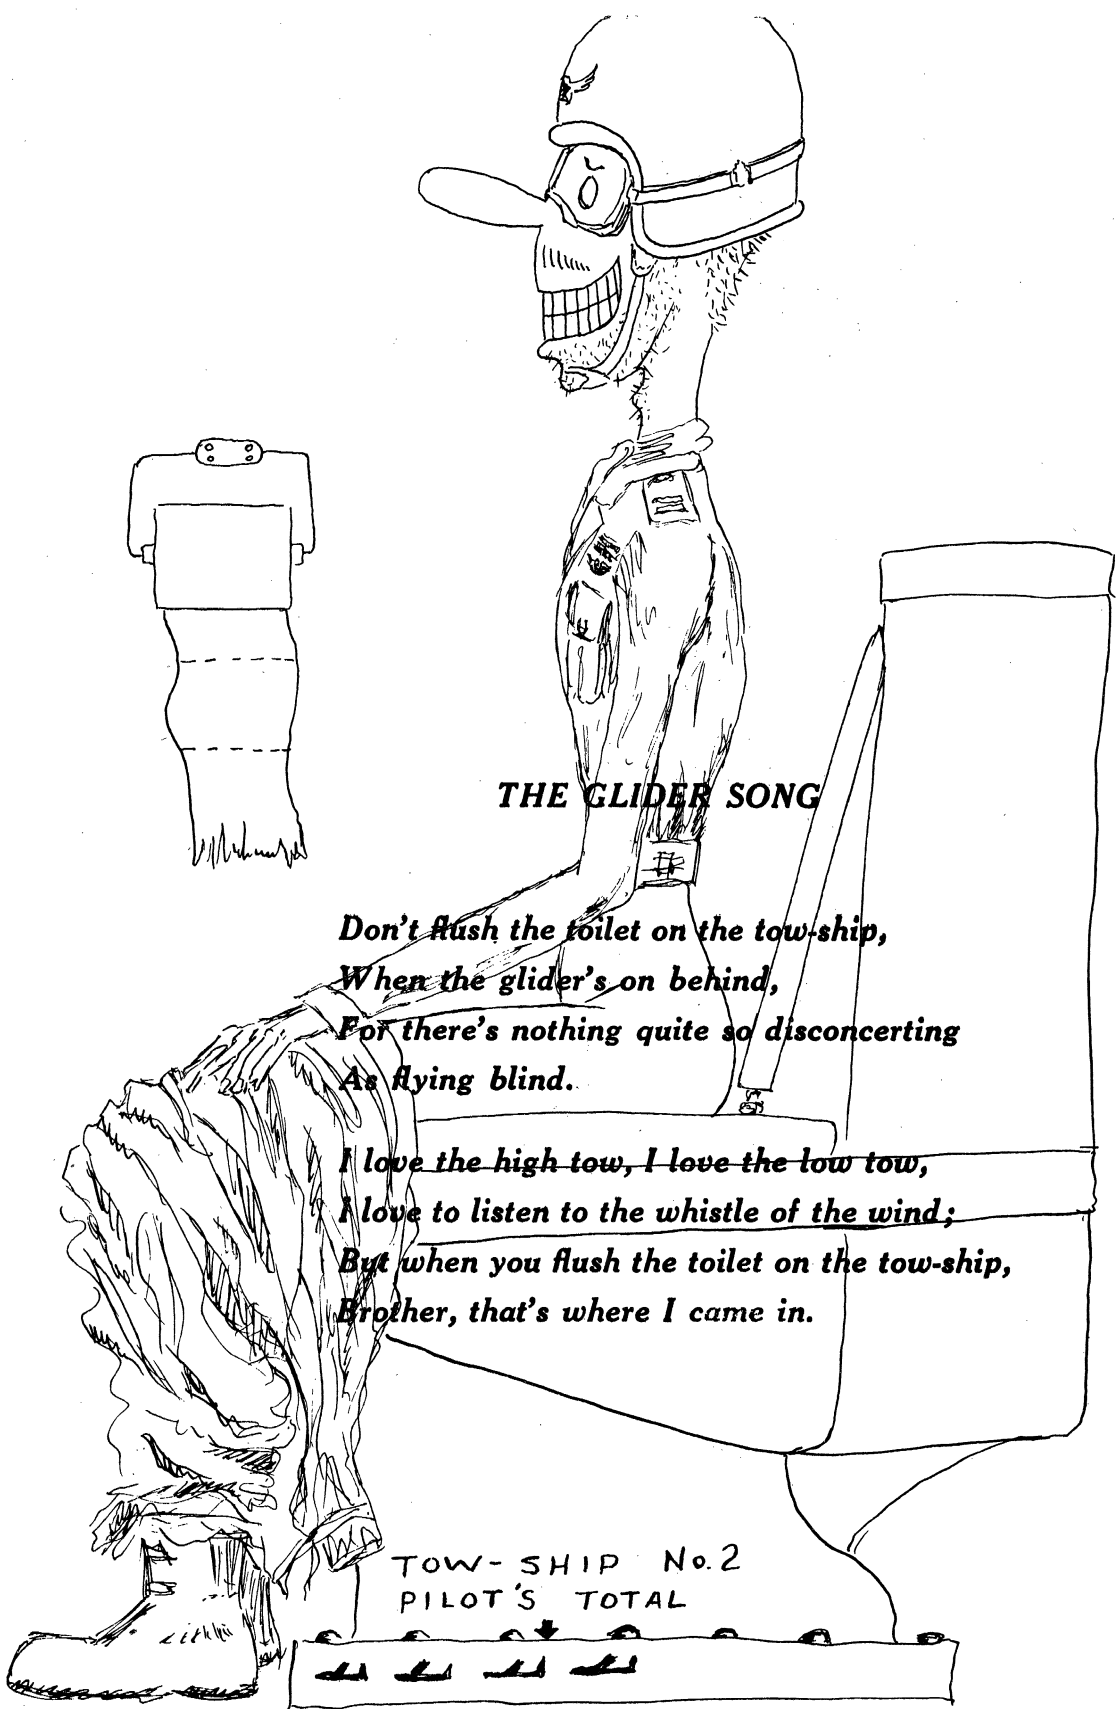 THE GLIDER SONG
Don't flush the toilet on the tow-ship,
When the glider's on behind,
For there's nothing quite so disconcerting
As flying blind.
I love the high tow, I love the low tow,
I love to listen to the whistle of the wind;
But when you flush the toilet on the tow-ship,
Brother, that's where I came in.
TOW-SHIP No. 2
PILOT'S TOTAL